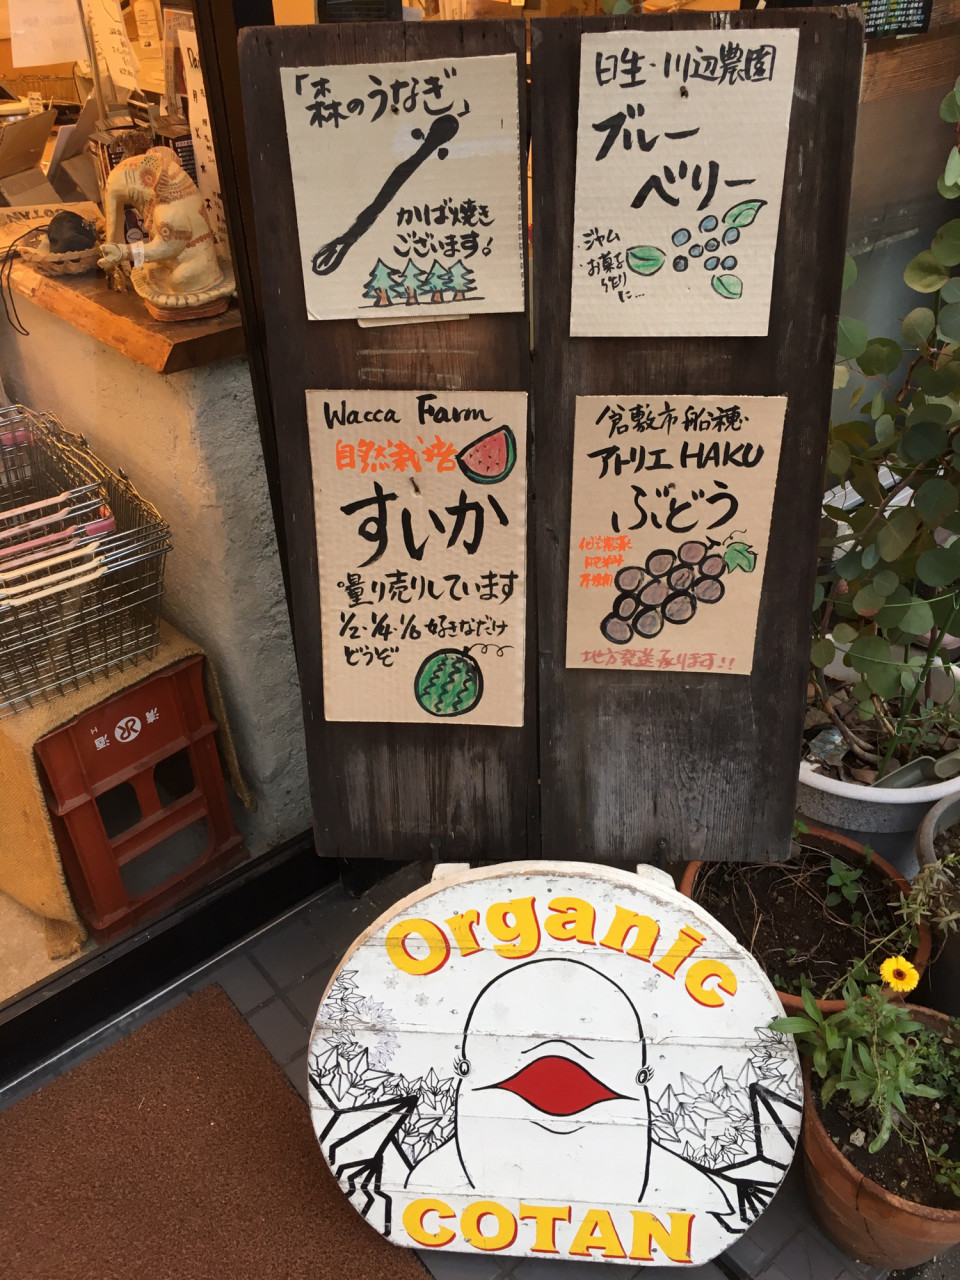 「森のうなぎ」
かば焼き
ございます。
日生・川辺農園
ブルー
ベリー
ジャム
お菓子
作り
に…
Wacca Farm
自然栽培
すいか
量り売りしています
1/2・1/4・1/6 好きなだけ
どうぞ
倉敷市船穂
アトリエ HAKU
ぶどう
化学農薬
肥料
不使用
地方発送承ります!!
清酒
Organic
COTAN